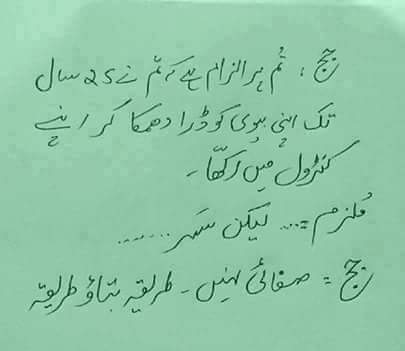 جج : تُم پر الزام ہے کہ تم نے 25 سال
تک اپنی بیوی کو ڈرا دھمکا کر اپنے
کنٹرول میں رکھّا۔
مُلزم =... لیکن سَر ......
جج = صفائی نہیں۔ طریقہ بتاؤ طریقہ